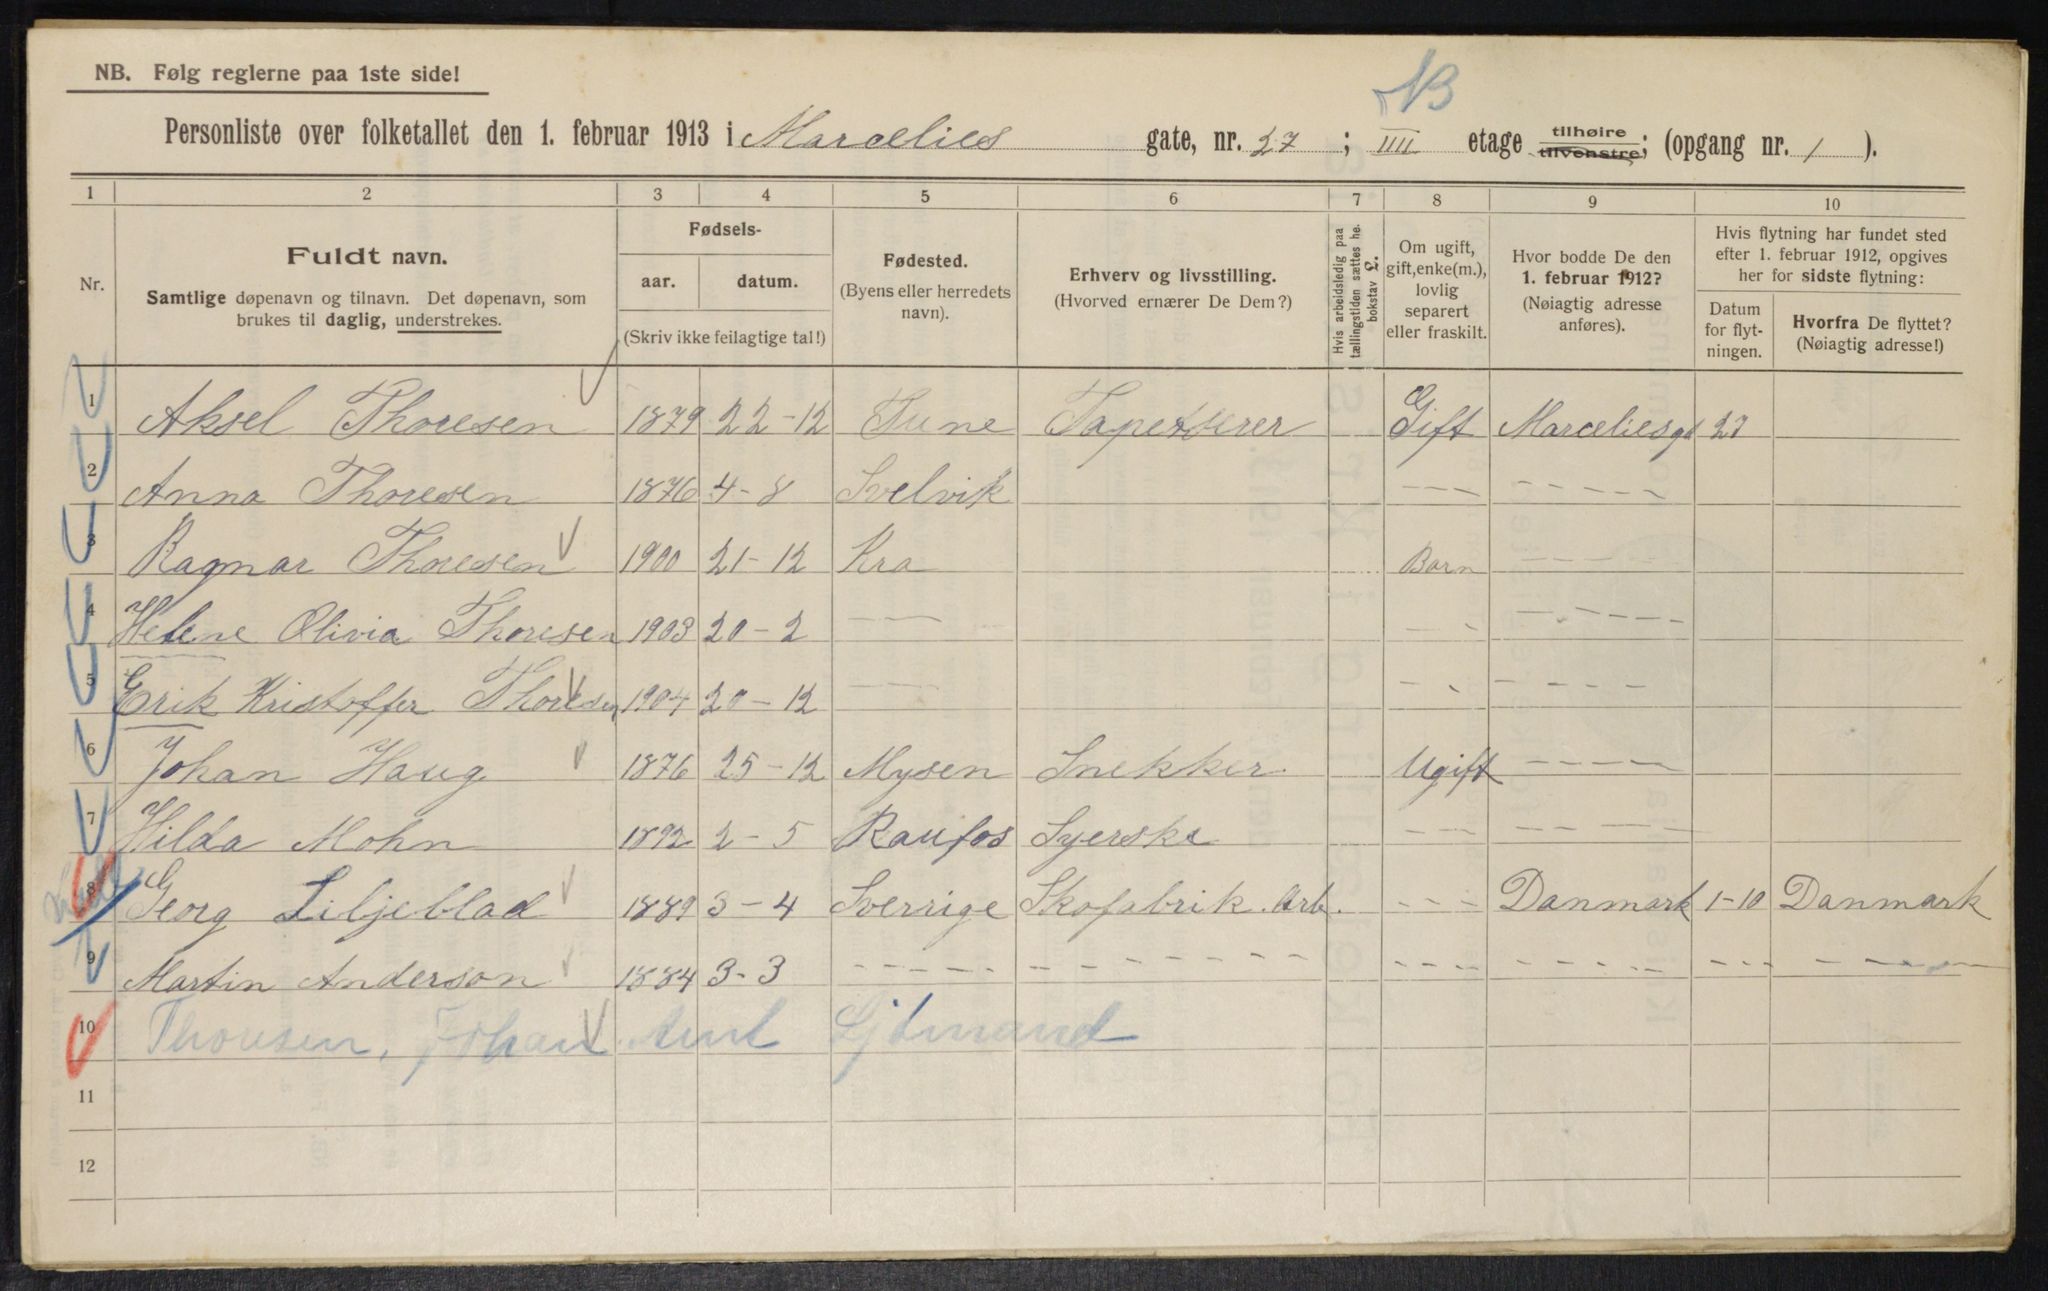 NB
NB. Følg reglerne paa 1ste side!
Personliste over folketallet den 1. februar 1913 i Marcelies gate, nr. 27 ; IIII etage tilhøire tilvenstre; (opgang nr. 1 ).
1 2 3 4 5 6 7 8 9 10
Nr.
Fuldt navn.
Samtlige døpenavn og tilnavn. Det døpenavn, som brukes til daglig, understrekes.
Fødsels-
aar. datum.
(Skriv ikke feilagtige tal!)
Fødested.
(Byens eller herredets navn).
Erhverv og livsstilling.
(Hvorved ernærer De Dem?)
Hvis arbeidsledig paa tællingstiden sættes he. bokstav L.
Om ugift, gift, enke(m.), lovlig separert eller fraskilt.
Hvor bodde De den 1. februar 1912?
(Nøiagtig adresse anføres).
Hvis flytning har fundet sted efter 1. februar 1912, opgives her for sidste flytning:
Datum for flyt-ningen.
Hvorfra De flyttet?
(Nøiagtig adresse!)
1 Aksel Thoresen 1879 22-12 Tune Tapetserer Gift Marceliesgt 27
2 Anna Thoresen 1876 4-8 Svelvik --- -----
3 Ragnar Thoresen 1900 21-12 Kra Barn -----
4 Helene Olivia Thoresen 1903 20-2 --- -- -----
5 Erik Kristoffer Thoresen 1904 20-12 --- --- -----
6 Johan Haug 1876 25-12 Mysen Snekker Ugift -----
7 Hilda Mohn 1892 2-5 Raufos Syerske --- -----
8 Georg Liljeblad 1889 3-4 Sverrige Skofabrik. Arb. --- Danmark 1-10 Danmark
9 Martin Anderson 1884 3-3 ----- ------- ---- ----- --- -----
10 Thoresen, Johan Aml Sjömand
11
12